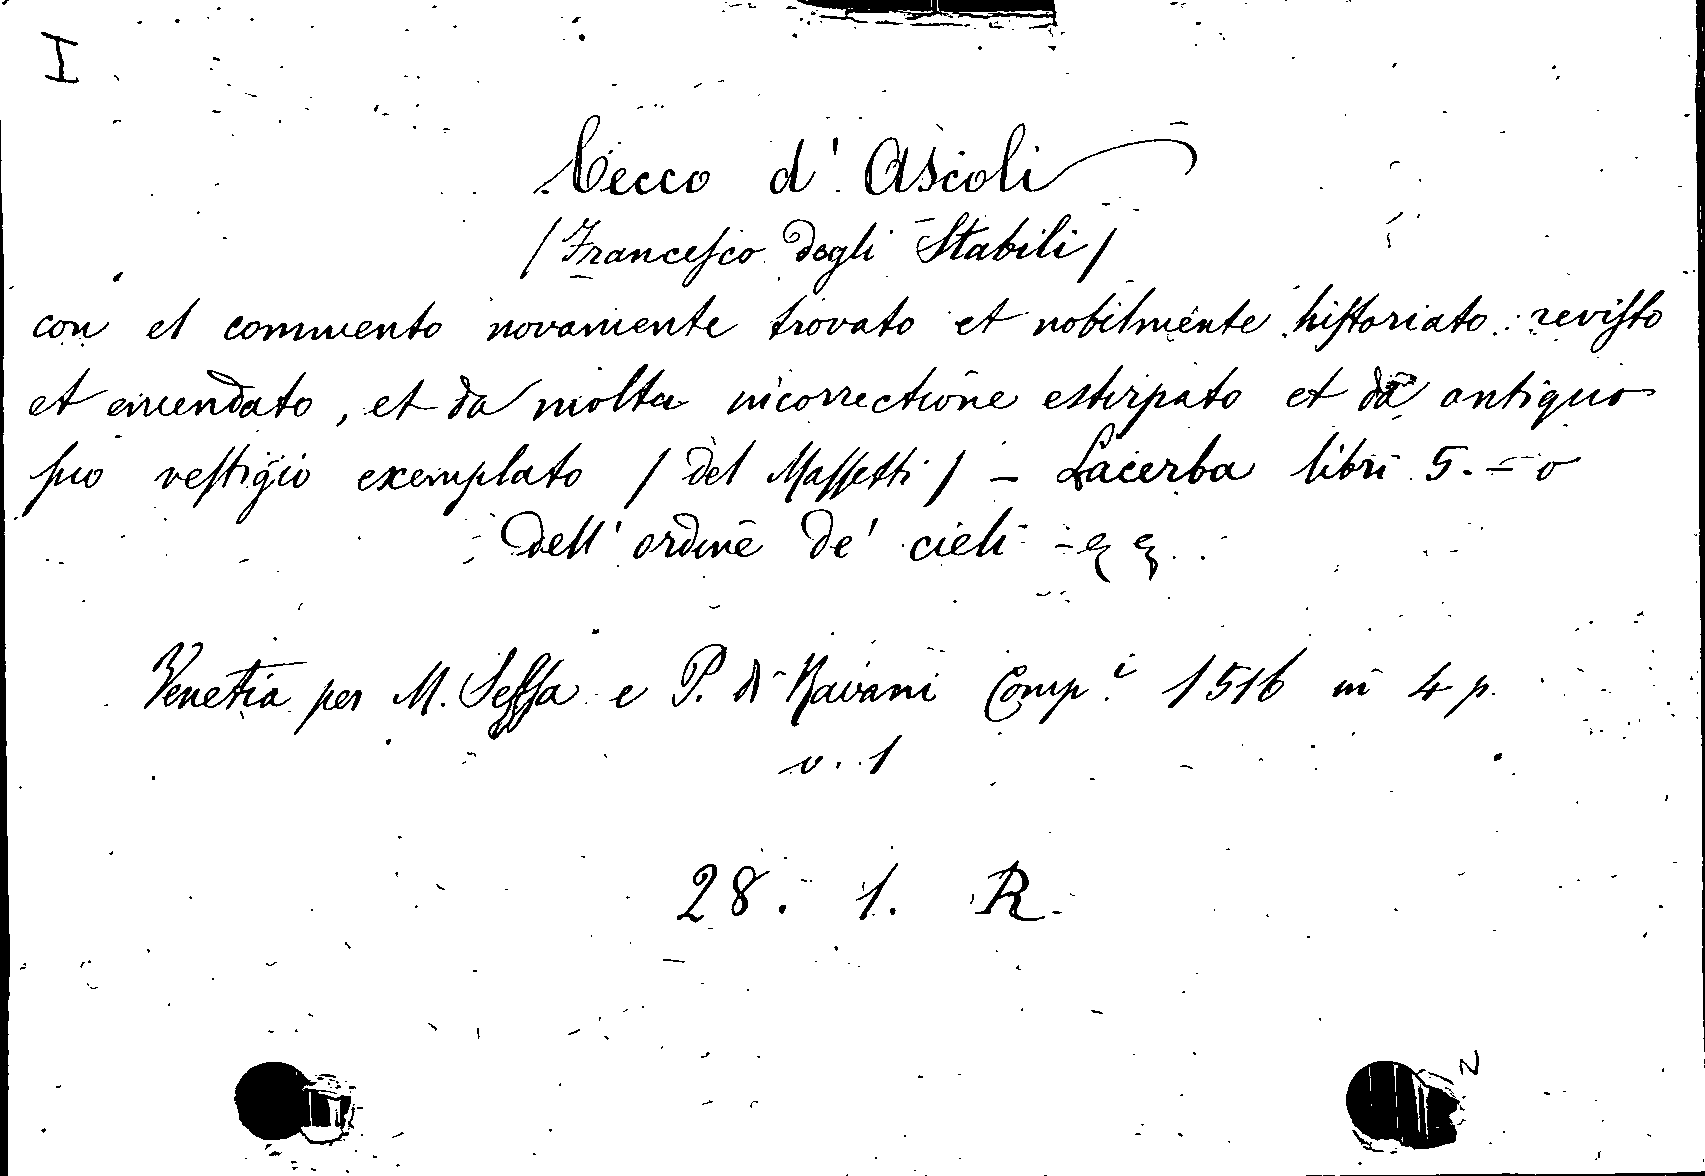 I
Cecco d' Ascoli
/Francesco degli Stabili/
con el commento novamente trovato et nobilmente historiato: revisto
et emendato, et da molta incorrectione estirpato et da antiquo
suo vestigio exemplato / del Massetti / - Lacerba libri 5. = o
dell' ordine de' cieli -
Venetia per M. Sessa e P. di Ravani Comp.i 1516 in 4 p.
v. 1
28. 1. R.
2